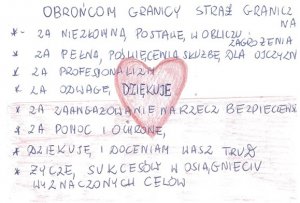 OBROŃCOM GRANICY STRAŻ GRANICZ
NA
* - ZA NIEZŁOMNĄ POSTAWĘ W OBLICZU
ZAGROŻENIA
* ZA PEŁNĄ, POŚWIĘCENIA SŁUŻBĘ DLA OJCZYZN
* ZA PROFESJONALIZM
* ZA ODWAGĘ, DZIĘKUJĘ
* ZA ZAANGAŻOWANIE NA RZECZ BEZPIECZEŃS
* ZA POMOC I OCHRONĘ,
* DZIĘKUJĘ I DOCENIAM WASZ TRUD
* ŻYCZĘ, SUKCESÓW W OSIĄGNIĘCIU
WYZNACZONYCH CELÓW